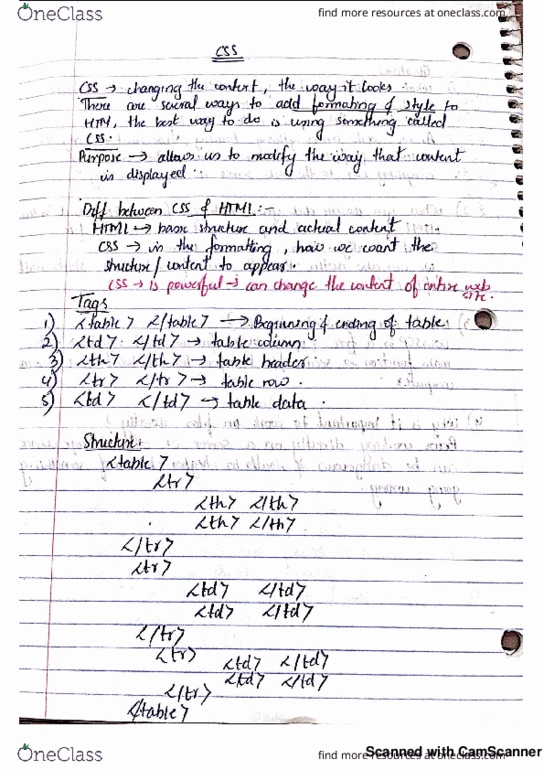 OneClass
find more resources at oneclass.com
CSS
CSS → changing the content, the way it looks.
There are several ways to add formating & style to
HTM, the best way to do is using something called
CSS.
Purpose → allows us to modify the way that content
is displayed.
Diff between CSS & HTML:-
HTML → basic structure and actual content
CSS → is the formatting, how we want the
structure/content to appear.
CSS → is powerful → can change the content of entire web
site.
Tags
1) <table> </table> → Beginning & ending of table
2) <td> </td> → table column
3) <th> </th> → table header
4) <tr> </tr> → table row.
5) <td> </td> → table data.
Structure:
<table>
<tr>
<th> </th>
<th> </th>
</tr>
<tr>
<td> </td>
<td> </td>
</tr>
<tr>
<td> </td>
<td> </td>
</tr>
</table>
OneClass
find more resources at oneclass.com
Scanned with CamScanner